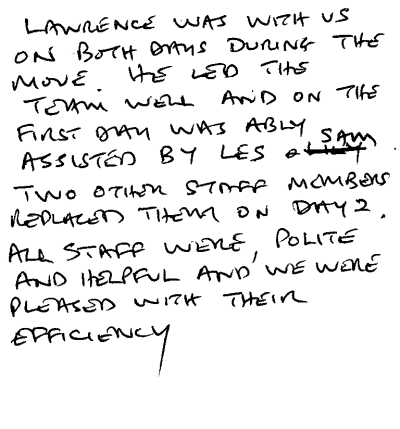 LAWRENCE WAS WITH US
ON BOTH DAYS DURING THE
MOVE. HE LED THE
TEAM WELL AND ON THE
FIRST DAY WAS ABLY
ASSISTED BY LES & SAM.
TWO OTHER STAFF MEMBERS
REPLACED THEM ON DAY 2.
ALL STAFF WERE, POLITE
AND HELPFUL AND WE WERE
PLEASED WITH THEIR
EFFICIENCY